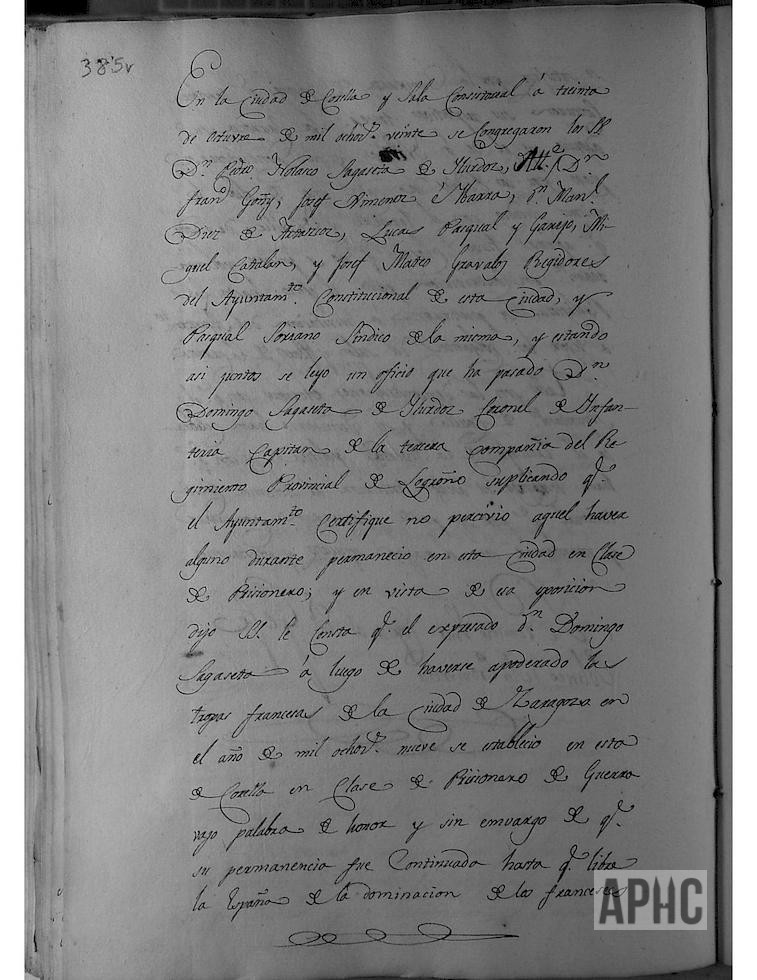 385v
En la Ciudad de Corella y Sala Consistorial á treinta
de Octubre de mil ochoz.s veinte se Congregaron los SS.
D.n Pedro Nolasco Sagaseta de Ylurdoz, Alc.e D.n
fran.co Goñy, Josef Ximenez é Ybarra, D.n Man.l
Diez de Artazcoz, Lucas Pasqual y Garejo, Mi-
guel Catalan, y Josef Mateo Gravalos Regidores
del Ayuntam.to Constitucional de esta Ciudad, y
Pasqual Soriano Sindico de la misma, y estando
asi juntos se leyo un oficio que ha pasado D.n
Domingo Sagaseta de Ylurdoz Coronel de Ynfan-
teria Capitan de la tercera compañia del Re
gimiento Provincial de Logroño suplicando q.e
el Ayuntam.to Certifique no percivio aquel haver
alguno durante permanecio en esta Ciudad en Clase
de Prisionero; y en vista de esa exposicion
dijo SS. le Consta q.e el expresado D.n Domingo
Sagaseta á luego de haverse apoderado las
tropas francesas de la Ciudad de Zaragoza en
el año de mil ochoz.s nueve se establecio en esta
de Corella en Clase de Prisionero de Guerra
vajo palabra de honor y sin emvargo de q.e
su permanencia fue Continuada hasta q.e libre
la España de la dominacion de los franceses
APHC